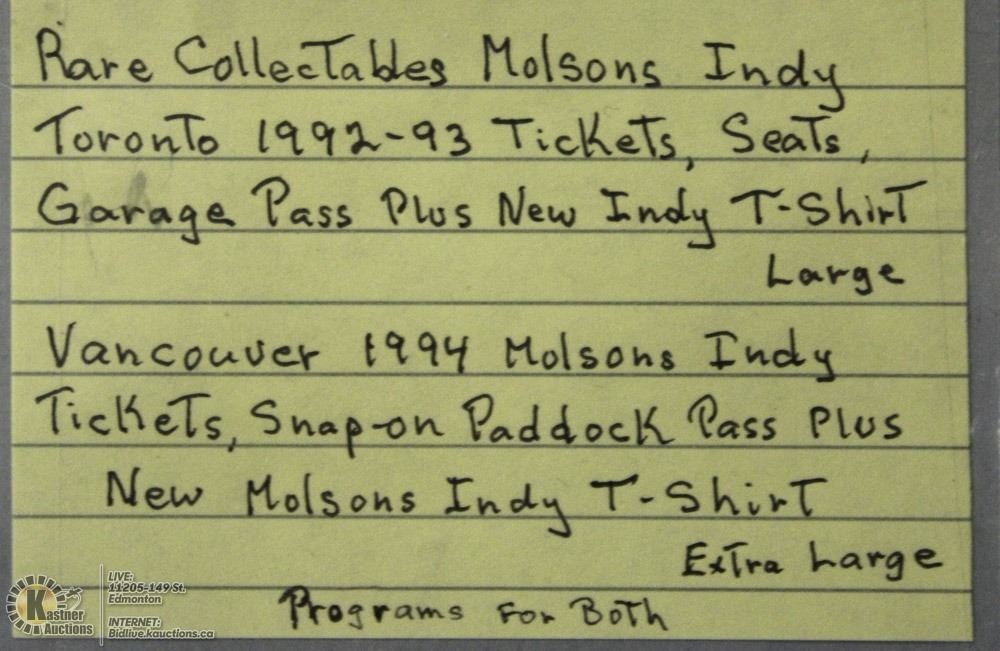 Rare Collectables Molsons Indy
Toronto 1992-93 Tickets, Seats,
Garage Pass Plus New Indy T-Shirt
Large
Vancouver 1994 Molsons Indy
Tickets, Snap-on Paddock Pass Plus
New Molsons Indy T-Shirt
Extra Large
Programs For Both
Kastner
Auctions
LIVE:
11205-149 St.
Edmonton
INTERNET:
Bidlive.kauctions.ca